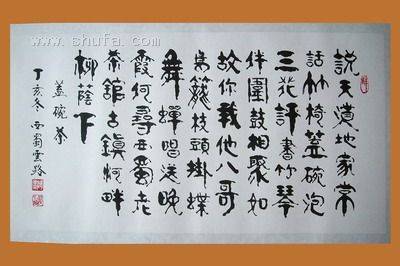 www.shufa.com
説天道地家常
話竹椅蓋碗泡
三花評書竹琴
伴圍鼓相聚如
故你我他八哥
鳥籠枝頭掛蝶
舞蟬唱送晚
霞何尋西蜀老
茶館古鎮河畔
柳蔭下
蓋碗茶
丁亥冬西蜀雲路